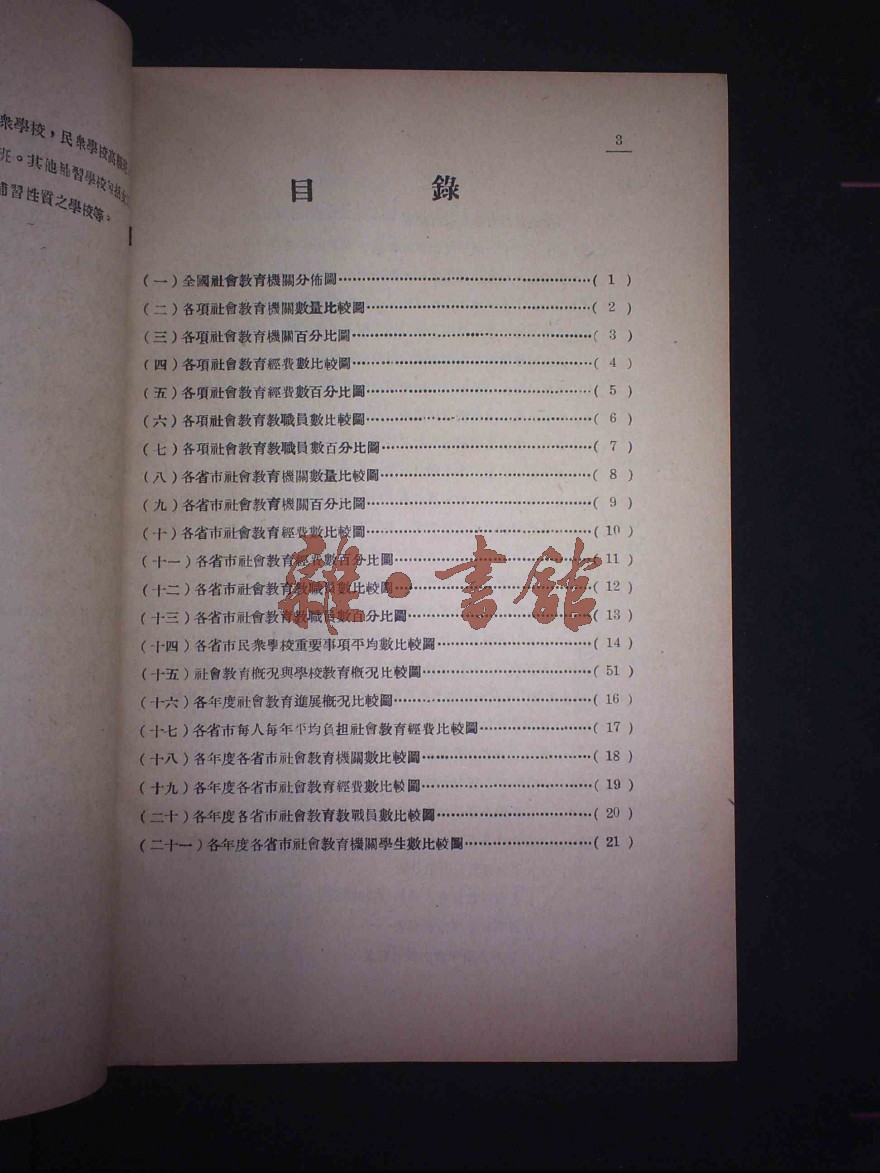 衆學校，民衆學校高級
班。其他補習學校包括
補習性質之學校等。
3
目 錄
（一）全國社會教育機關分佈圖……（ 1 ）
（二）各項社會教育機關數量比較圖……（ 2 ）
（三）各項社會教育機關百分比圖……（ 3 ）
（四）各項社會教育經費數比較圖……（ 4 ）
（五）各項社會教育經費數百分比圖……（ 5 ）
（六）各項社會教育教職員數比較圖……（ 6 ）
（七）各項社會教育教職員數百分比圖……（ 7 ）
（八）各省市社會教育機關數量比較圖……（ 8 ）
（九）各省市社會教育機關百分比圖……（ 9 ）
（十）各省市社會教育經費數比較圖……（ 10 ）
（十一）各省市社會教育經費數百分比圖……（ 11 ）
（十二）各省市社會教育教職員數比較圖……（ 12 ）
（十三）各省市社會教育教職員數百分比圖……（ 13 ）
（十四）各省市民衆學校重要事項平均數比較圖……（ 14 ）
（十五）社會教育概況與學校教育概況比較圖……（ 51 ）
（十六）各年度社會教育進展概況比較圖……（ 16 ）
（十七）各省市每人每年平均負担社會教育經費比較圖……（ 17 ）
（十八）各年度各省市社會教育機關數比較圖……（ 18 ）
（十九）各年度各省市社會教育經費數比較圖……（ 19 ）
（二十）各年度各省市社會教育教職員數比較圖……（ 20 ）
（二十一）各年度各省市社會教育機關學生數比較圖……（ 21 ）
雜·書館